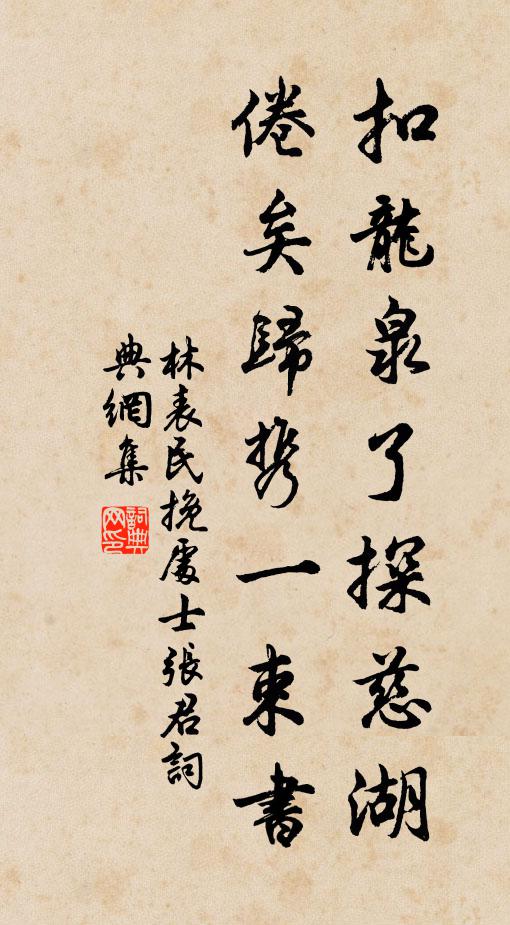 扣龍泉了探慈湖
倦矣歸携一束書
林表民挽處士張君詞
典網集
詞典網印